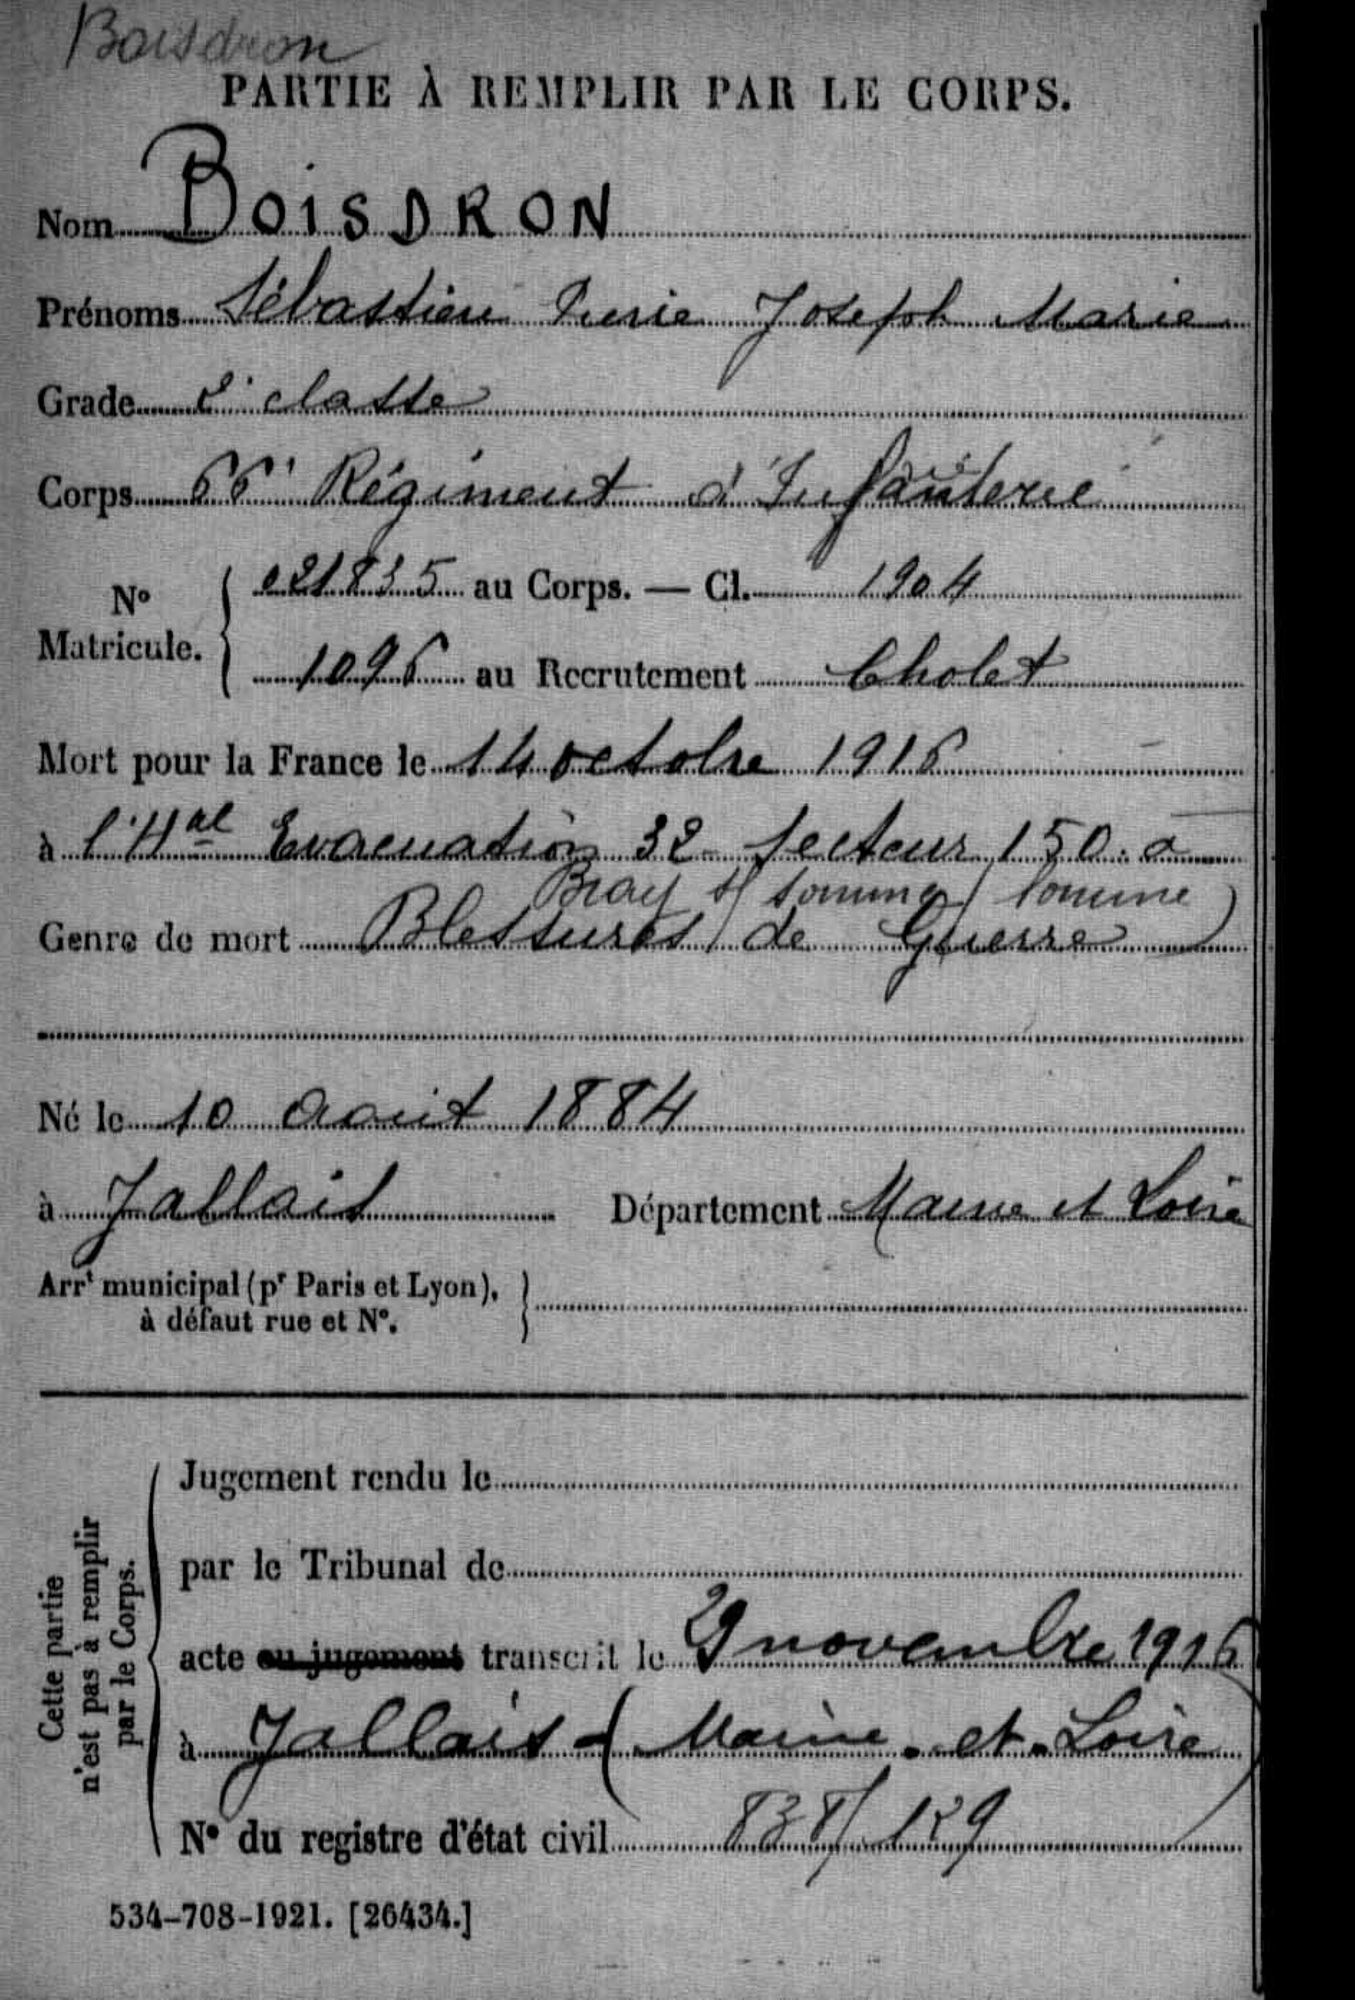 Boisdron
PARTIE À REMPLIR PAR LE CORPS.
Nom BOISDRON
Prénoms Sébastien Joseph Marie
Grade 2e classe
Corps 66e Régiment d'Infanterie
No Matricule. 021835 au Corps. — Cl. 1904
1096 au Recrutement Cholet
Mort pour la France le 14 octobre 1916
à l'Hal Evacuation 32 secteur 150. à
Bray s/ Somme (Somme)
Genre de mort Blessures de Guerre
Né le 10 Août 1884
à Jallais Département Maine et Loire
Arrt municipal (pr Paris et Lyon),
à défaut rue et No.
Cette partie
n'est pas à remplir
par le Corps.
Jugement rendu le
par le Tribunal de
acte ou jugement transcrit le 29 novembre 1916
à Jallais (Maine-et-Loire)
No du registre d'état civil 838/129
534-708-1921. [26434.]